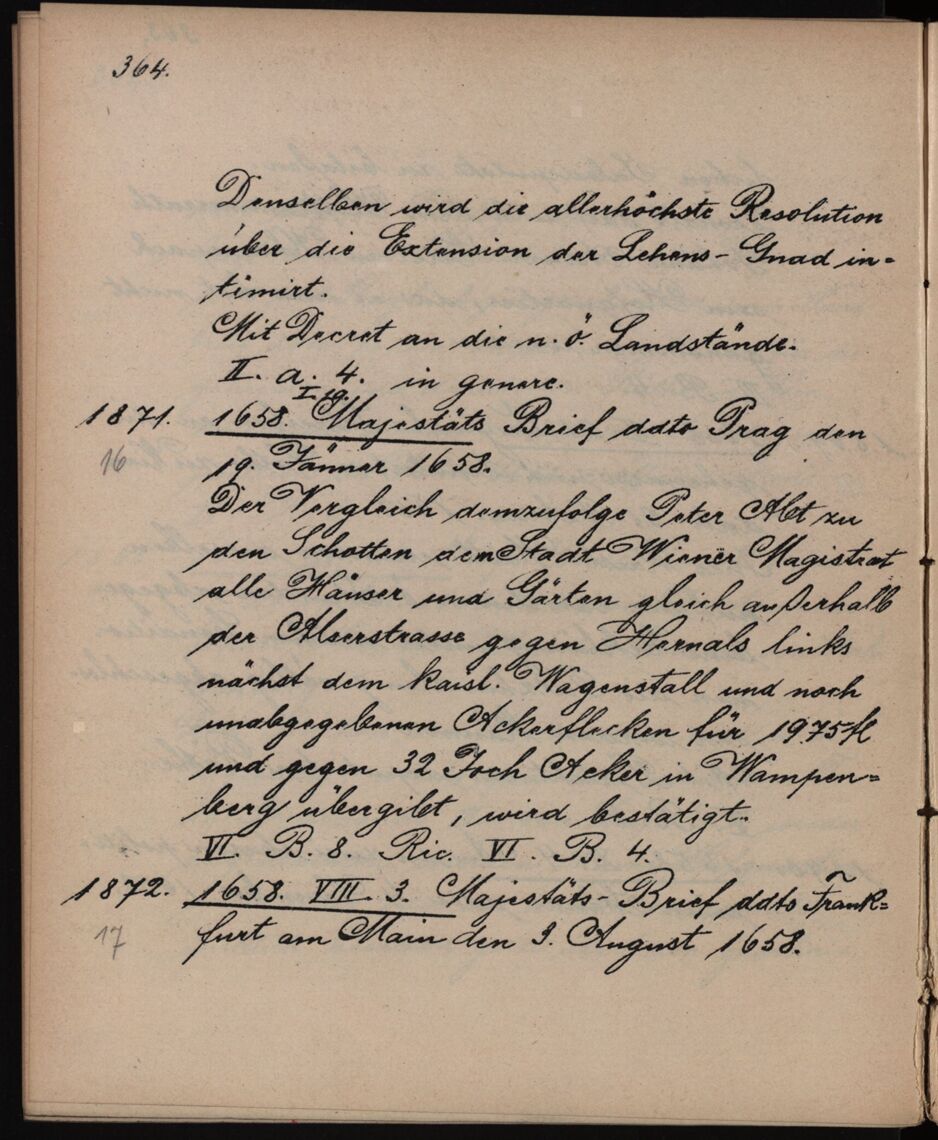 364.
Denselben wird die allerhöchste Resolution
über die Extension der Lehens- Gnad in=
timirt.
Mit Decret an die n. ö. Landstände.
II. a. 4. in genere.
1871. 1658. I 19. Majestäts Brief ddto Prag den
16 19. Jänner 1658.
Der Vergleich demzufolge Peter Abt zu
den Schotten dem Stadt Wiener Magistrat
alle Häuser und Gärten gleich außerhalb
der Alserstrasse gegen Hernals links
nächst dem kaisl. Wagenstall und noch
unabgegebenen Ackerflecken für 1975 fl
und gegen 32 Joch Acker in Wampen=
berg übergibt, wird bestätigt.
VI. B. 8. Ric. VI. B. 4.
1872. 1658. VIII. 3. Majestäts- Brief ddto Frank=
17 furt am Main den 3. August 1658.